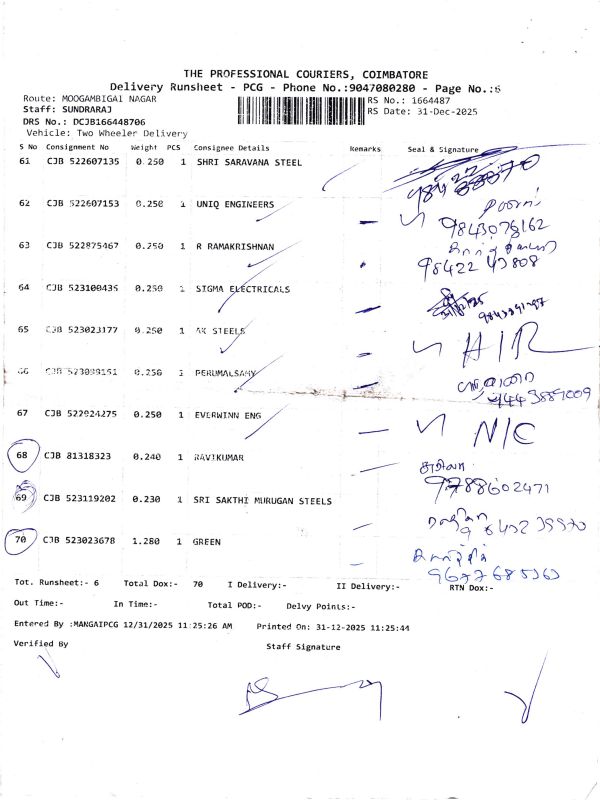 THE PROFESSIONAL COURIERS, COIMBATORE
Delivery Runsheet - PCG - Phone No.:9047080280 - Page No.:6
Route: MOOGAMBIGAI NAGAR
Staff: SUNDRARAJ
DRS No.: DCJB166448706
Vehicle: Two Wheeler Delivery
RS No.: 1664487
RS Date: 31-Dec-2025
S No Consignment No Weight PCS Consignee Details Remarks Seal & Signature
61 CJB 522607135 0.250 1 SHRI SARAVANA STEEL
62 CJB 522607153 0.250 1 UNIQ ENGINEERS
9843078162
63 CJB 522875467 0.250 1 R RAMAKRISHNAN
98422 43808
64 CJB 523100435 0.250 1 SIGMA ELECTRICALS
65 CJB 523023177 0.250 1 AK STEELS
66 CJB 523099151 0.250 1 PERUMALSAMY
67 CJB 522924275 0.250 1 EVERWINN ENG
N/C
68 CJB 81318323 0.240 1 RAVIKUMAR
9788602471
69 CJB 523119202 0.230 1 SRI SAKTHI MURUGAN STEELS
70 CJB 523023678 1.280 1 GREEN
Tot. Runsheet:- 6 Total Dox:- 70 I Delivery:- II Delivery:- RTN Dox:-
Out Time:- In Time:- Total POD:- Delvy Points:-
Entered By :MANGAIPCG 12/31/2025 11:25:26 AM Printed On: 31-12-2025 11:25:44
Verified By Staff Signature